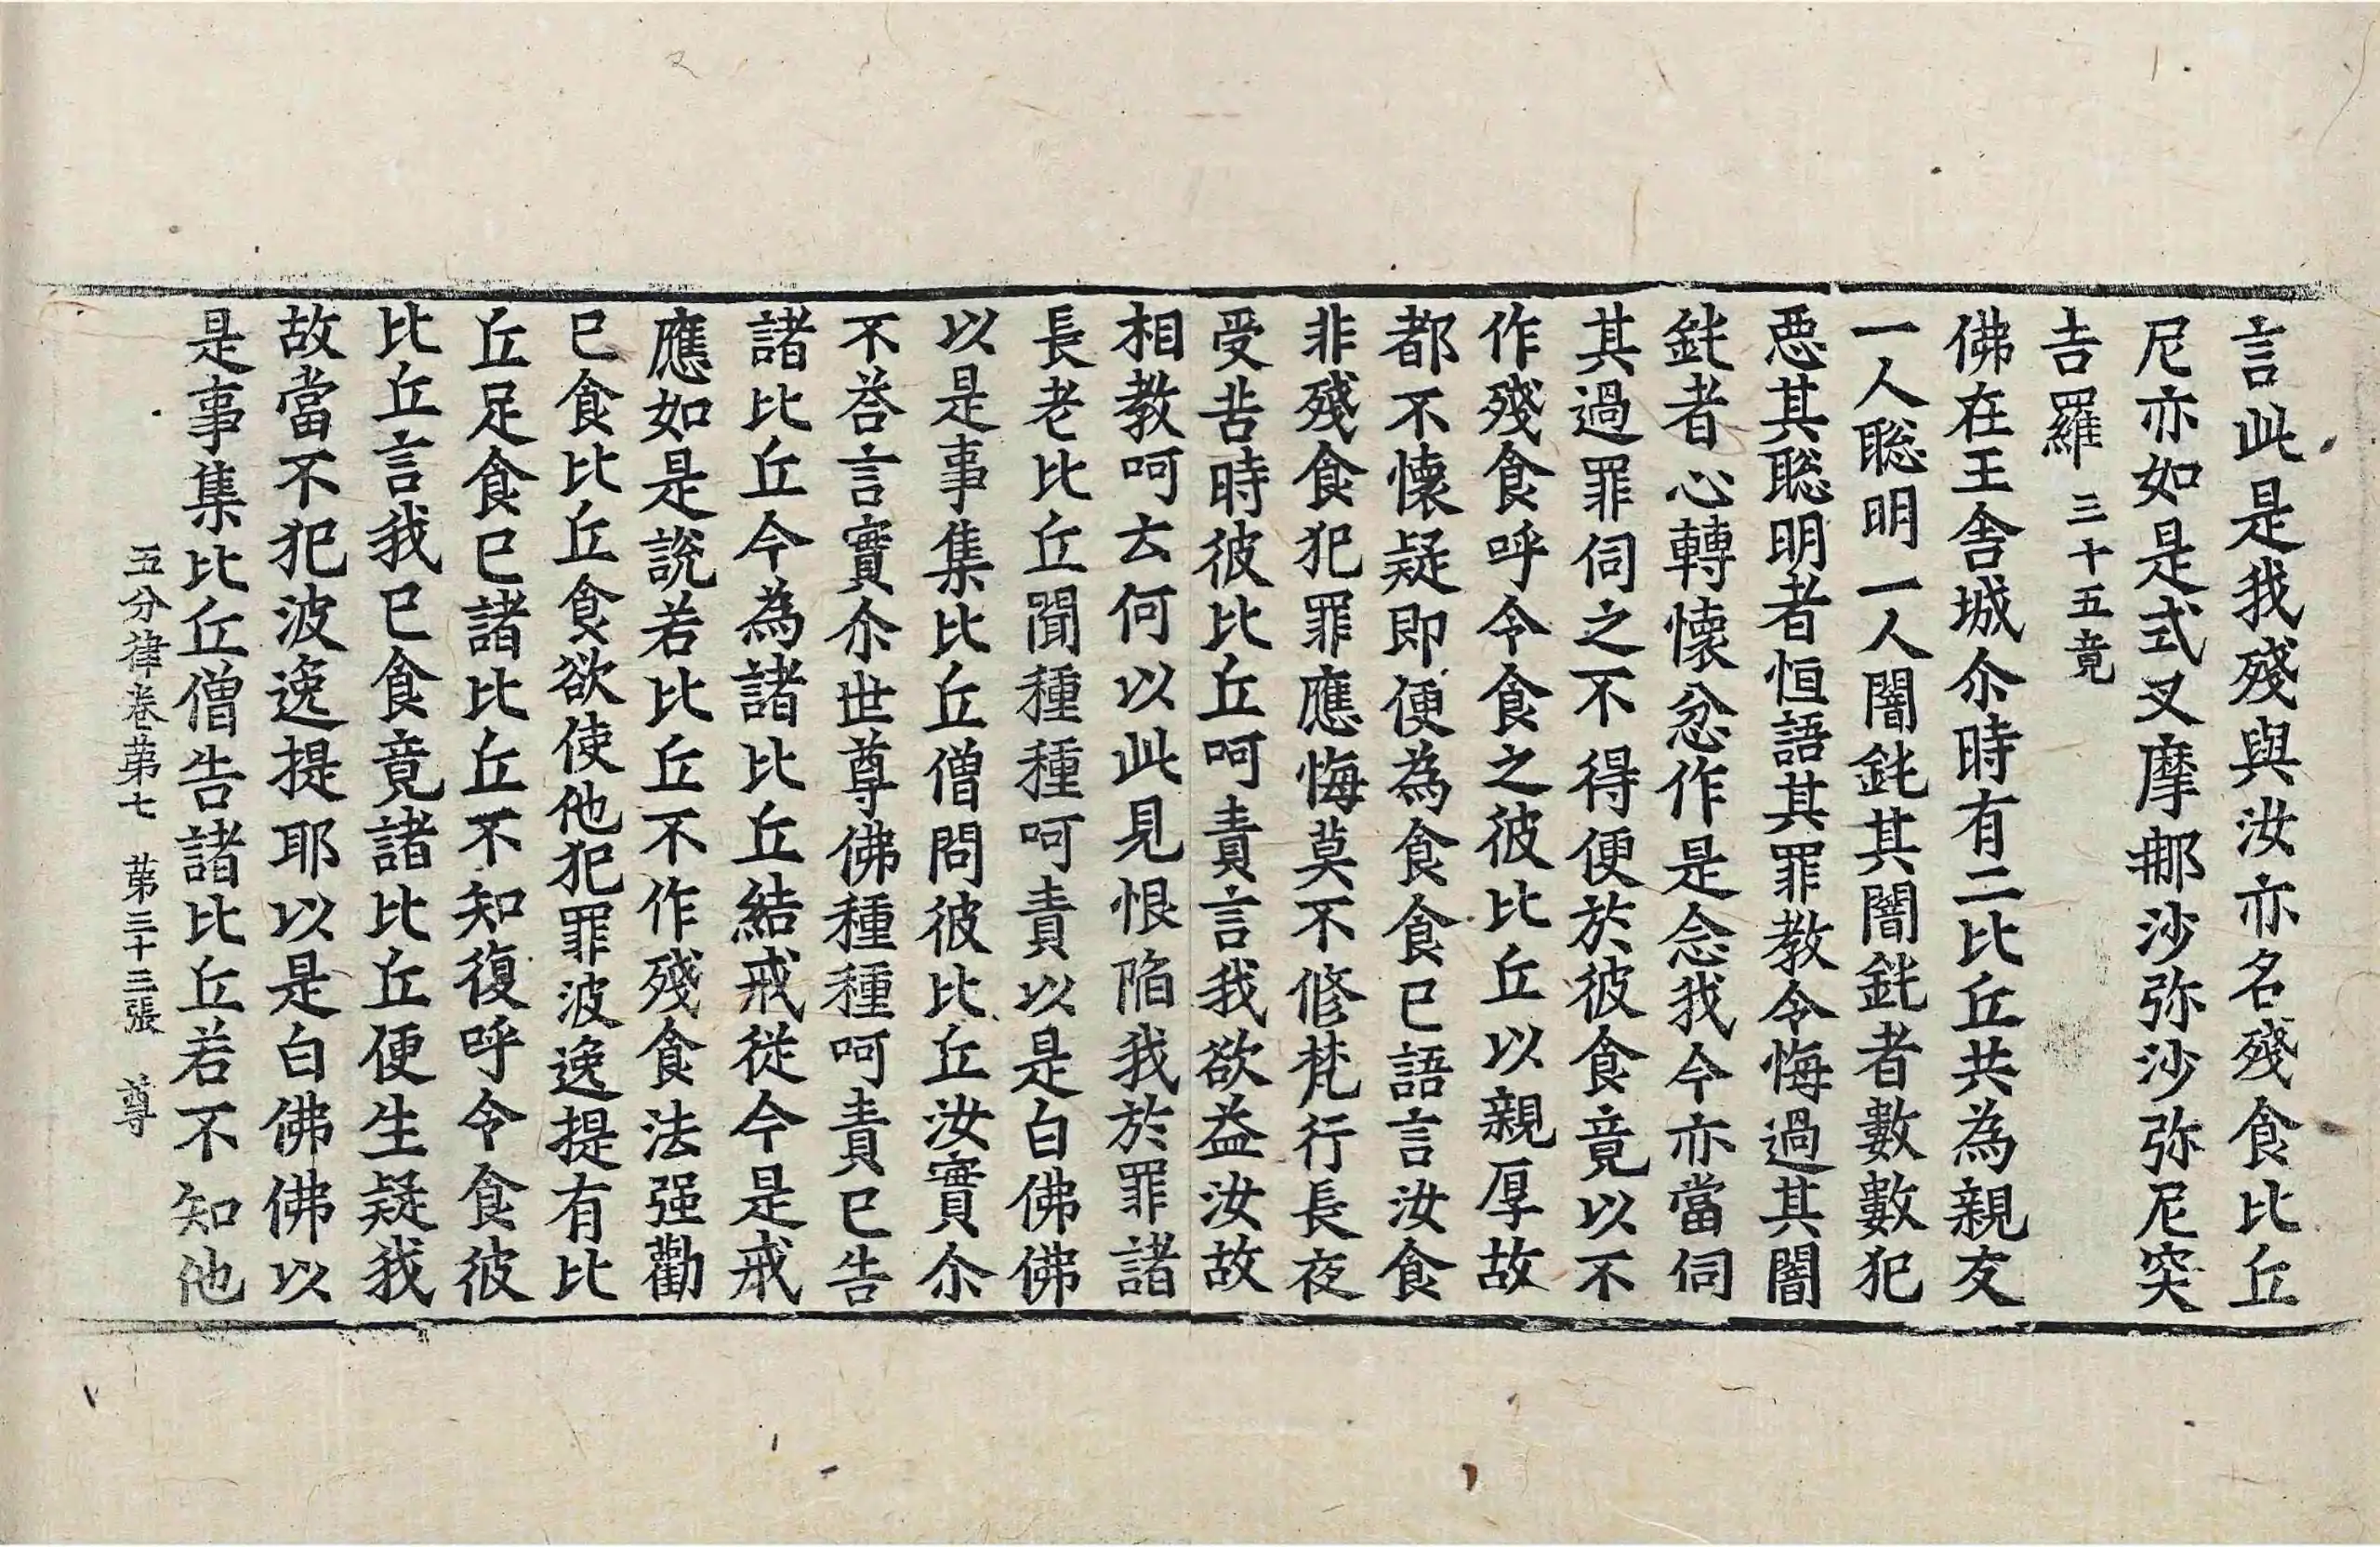 言此是我殘與汝亦名殘食比丘
尼亦如是式叉摩那沙弥沙弥尼突
吉羅 三十五竟
佛在王舍城尒時有二比丘共為親友
一人聡明一人闇鈍其闇鈍者數數犯
惡其聡明者恒語其罪教令悔過其闇
鈍者心轉懐忿作是念我今亦當伺
其過罪伺之不得便於彼食竟以不
作殘食呼令食之彼比丘以親厚故
都不懐疑即便為食食已語言汝食
非殘食犯罪應悔莫不修梵行長夜
受苦時彼比丘呵責言我欲益汝故
相教呵去何以此見恨陥我於罪諸
長老比丘聞種種呵責以是白佛佛
以是事集比丘僧問彼比丘汝實尒
不荅言實尒世尊佛種種呵責已告
諸比丘今為諸比丘結戒従今是戒
應如是說若比丘不作殘食法强勸
已食比丘食欲使他犯罪波逸提有比
丘足食已諸比丘不知復呼令食彼
比丘言我已食竟諸比丘便生疑我
故當不犯波逸提耶以是白佛佛以
是事集比丘僧告諸比丘若不知他
五分律卷苐七 苐三十三張 尊